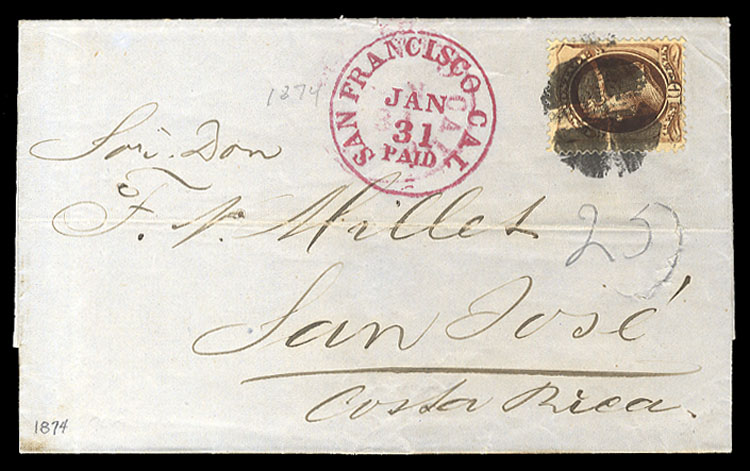 SAN FRANCISCO CAL
JAN
31
PAID
1874
Sor. Don
F. N. Millet
25
San José
Costa Rica.
1874